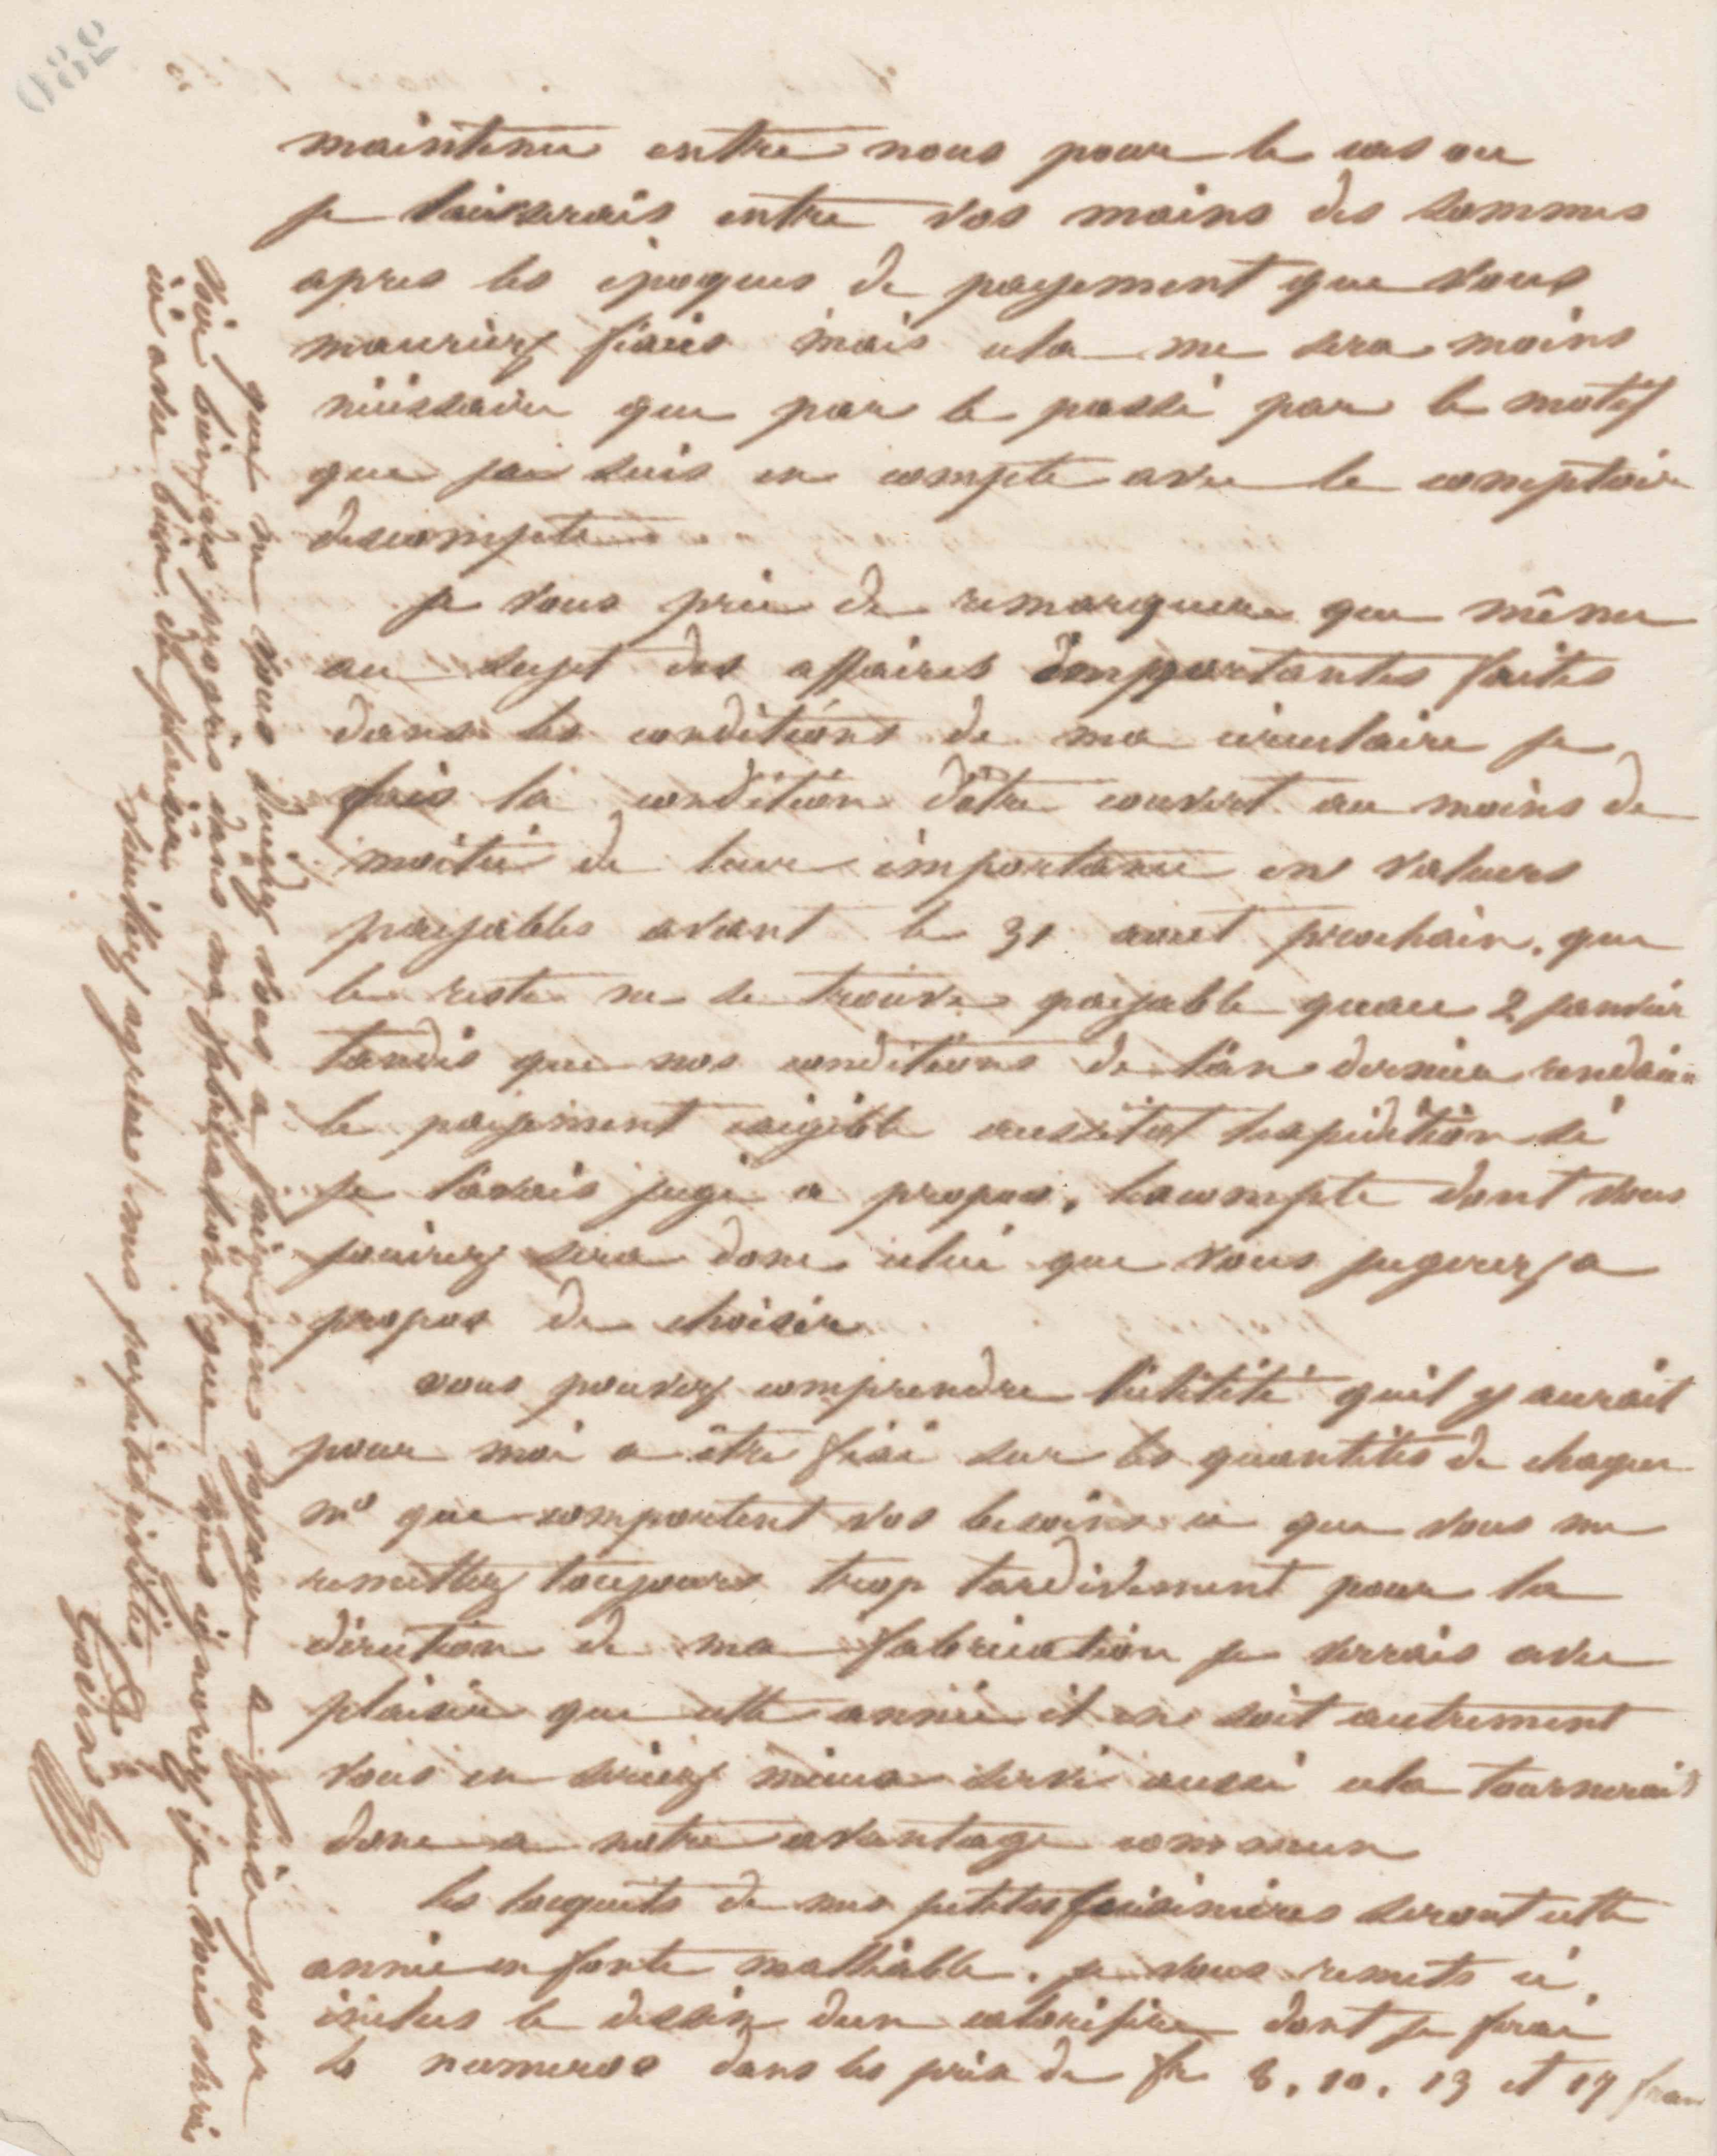 082
maintenu entre nous pour le cas ou
je laisserais entre vos mains des sommes
apres les époques de payement que vous
mauriez fixés mais cela me sera moins
nécessaire que par le passé par le motif
que je suis en compte avec le comptoir
descompte
je vous prie de remarquer que même
au sujet des affaires importantes faites
dans les conditions de ma circulaire je
fais la condition dêtre couvert au moins de
moitié de leur importance en valeurs
payables avant le 31 aout prochain, que
le reste ne se trouve payable quau 2 janvier
tandis que nos conditions de lan dernier rendaien
le payement exigible aussitot lexpédition si
je lavais jugé a propos, lescompte dont vous
jouirez sera donc celui que vous jugerez a
propos de choisir
vous pouvez comprendre lutilité quil y aurait
pour moi a être fixé sur les quantités de chaque
no que comportent vos besoins ce que vous me
remettez toujours trop tardivement pour la
direction de ma fabrication je verrais avec
plaisir que cette année il en soit autrement
vous en seriez mieux servi aussi cela tournerait
donc a notre avantage commun
les loquets de mes petites cuisinières seront cette
année en fonte malléable. je vous remets ci
inclus le dessin dun calorifère dont je ferai
les numeros dans les prix de fr 8, 10, 13 et 17 fran
que ne vous décidez vous a faire un voyage a Guise pour
voir bien des progrès dans ma fabrication que vous ignorez je vous verrai
ici avec bien du plaisir
veuillez agréer mes parfaites civilités
Godin